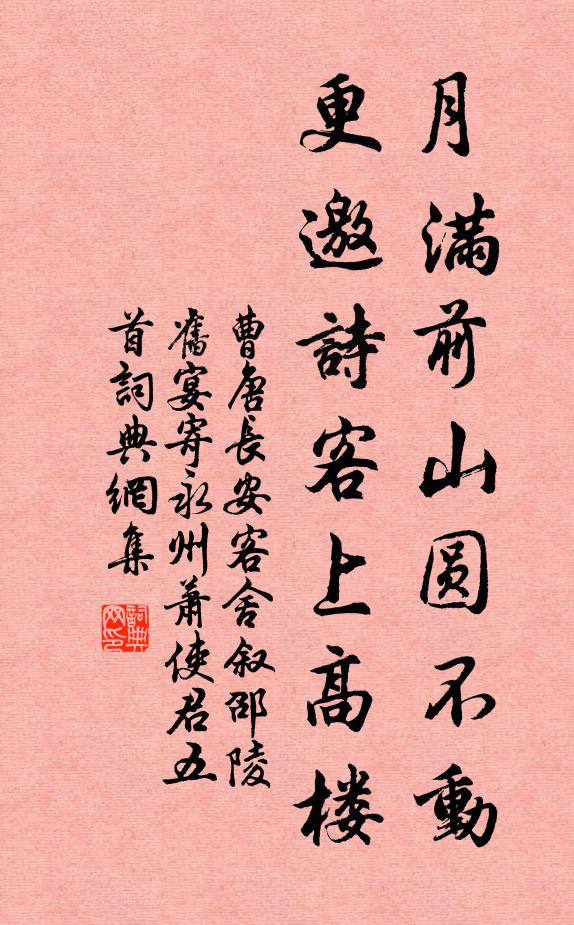 月满前山圆不動
更邀詩客上高楼
曹唐長安客舍叙邵陵
舊宴寄永州萧使君五
首詞典網集
詞典
网印